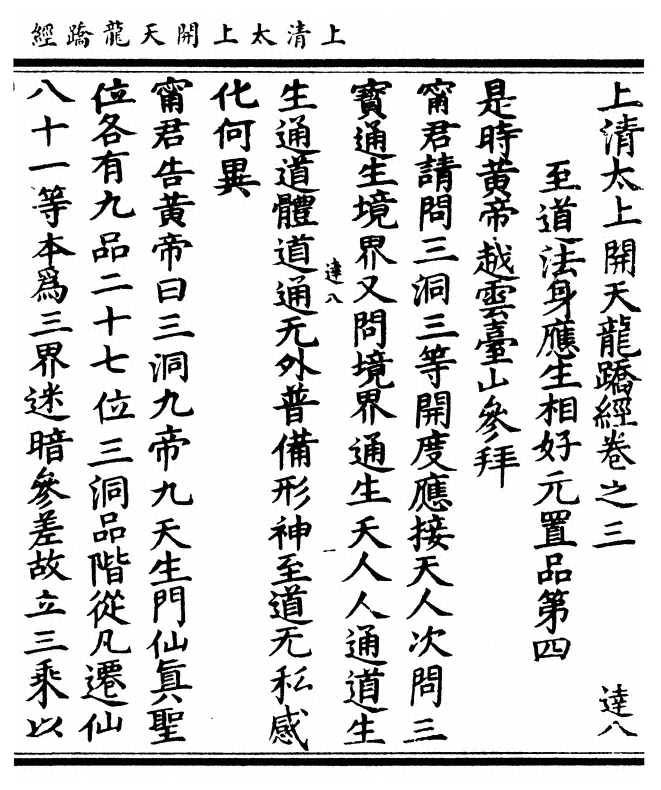 上清太上開天龍蹻經
上清太上開天龍蹻經卷之三
達八
至道法身應生相好元置品第四
是時黃帝越雲臺山參拜
甯君請問三洞三等開度應接天人次問三
寶通生境界又問境界通生天人人通道生
生通道體道通无外普備形神至道无私感
達八
一
化何異
甯君告黃帝曰三洞九帝九天生門仙眞聖
位各有九品二十七位三洞品階從凡遷仙
八十一等本爲三界迷暗參差故立三乘以